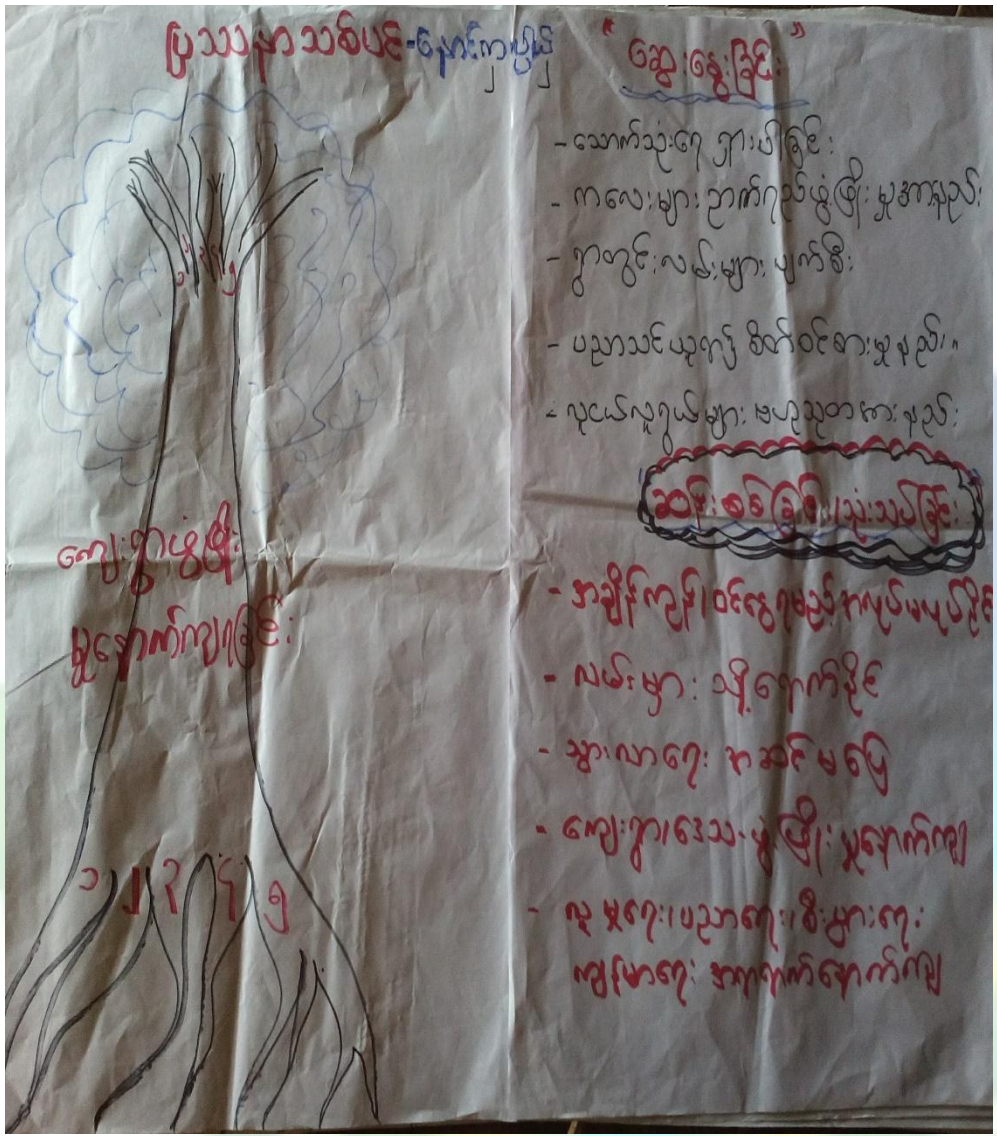 ပြဿနာသစ်ပင်-နောင်ကူပွယ်
"ဆွေးနွေးခြင်း"
- သောက်သုံးရေ ရှားပါးခြင်း
- ကလေးများ ဉာဏ်ရည်ဖွံ့ဖြိုးမှုအားနည်း
- ရွာတွင်းလမ်းများ ပျက်စီး
- ပညာသင်ယူရာ၌ စိတ်ဝင်စားမှုနည်း။
- လူငယ်လူရွယ်များ ဗဟုသုတအားနည်း
ဆန်းစစ်ခြင်း၊ သုံးသပ်ခြင်း
- အချိန်ကုန်၊ ဝင်ငွေရမည့် အလုပ်မလုပ်နိုင်
- လမ်းမှား သို့ရောက်နိုင်
- သွားလာရေး အဆင်မပြေ
- ကျေးရွာ၊ ဒေသ ဖွံ့ဖြိုးမှုနောက်ကျ
- လူမှုရေး၊ ပညာရေး၊ စီးပွားရေး
ကျန်းမာရေး အဘက်ဘက်နောက်ကျ
၁ ၂ ၃ ၄ ၅
ကျေးရွာဖွံ့ဖြိုး
မှုနောက်ကျရခြင်း
၁ ၂ ၃ ၄ ၅